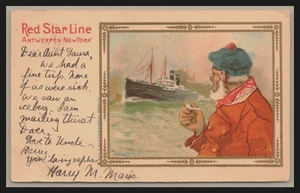 Red Star Line
ANTWERPEN NEW YORK
Dear Aunt Laura,
We had a
fine trip, none
of us were sick.
We saw an
iceberg. I am
mailing this at
Dover.
Love to Uncle
Harry
Your loving nephew
Harry M.